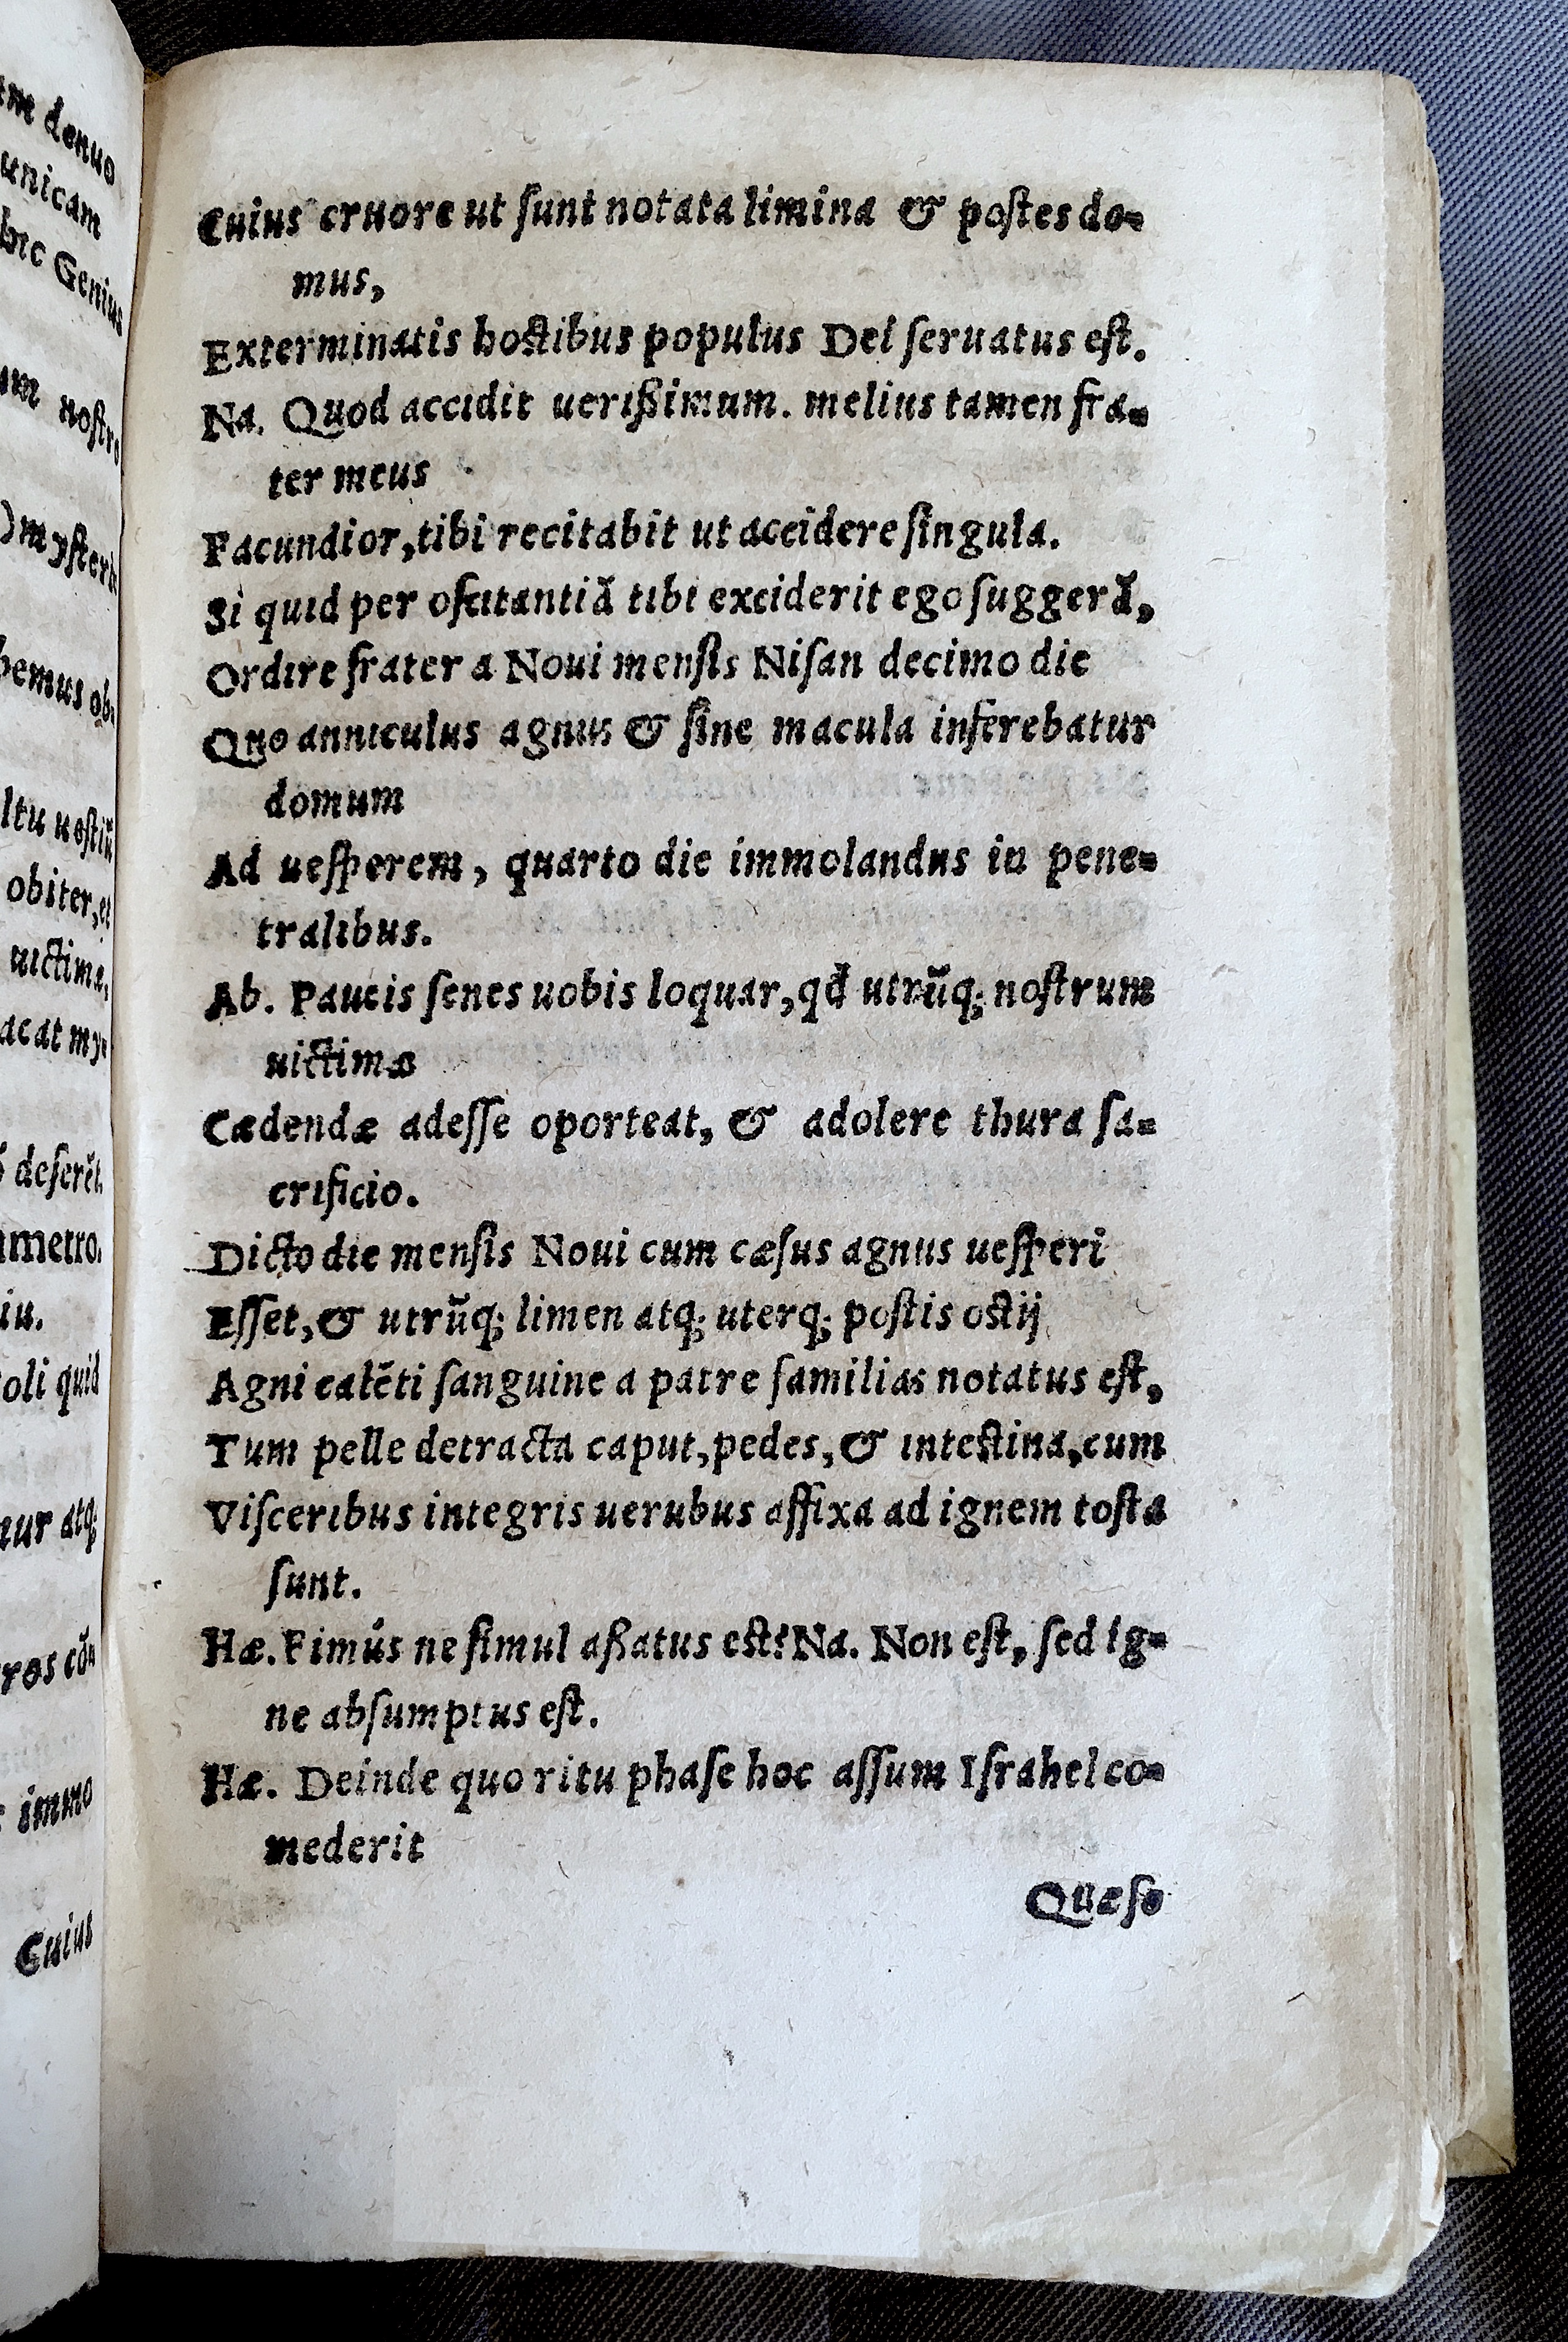 Cuius cruore ut ſunt notata limina & poſtes do-
mus,
Exterminatis hoſtibus populus Dei ſeruatus eſt.
Na. Quod accidit ueriſsimum. melius tamen fra-
ter meus
Facundior, tibi recitabit ut accidere ſingula.
Si quid per oſcitantiā tibi exciderit ego ſuggerā,
Ordire frater a Noui menſis Niſan decimo die
Quo anniculus agnus & ſine macula inferebatur
domum
Ad ueſperem, quarto die immolandus in pene-
tralibus.
Ab. Paucis ſenes uobis loquar, qđ utrūq; noſtrum
uictimæ
Cædendæ adeſſe oporteat, & adolere thura ſa-
crificio.
Dicto die menſis Noui cum cæſus agnus ueſperi
Eſſet, & utrūq; limen atq; uterq; poſtis oſtij
Agni calēti ſanguine a patre familias notatus eſt,
Tum pelle detracta caput, pedes, & inteſtina, cum
Viſceribus integris uerubus affixa ad ignem toſta
ſunt.
Hæ. Fimús ne ſimul aſsatus eſt? Na. Non eſt, ſed ig-
ne abſumptus eſt.
Hæ. Deinde quo ritu phaſe hoc aſſum Iſrahel co-
mederit
Quæſo
denuo
unicam
Genius
noſtro
ob-
obiter, et
uictimæ,
acat my-
deſerēt
quid
atq;
immo
Cuius